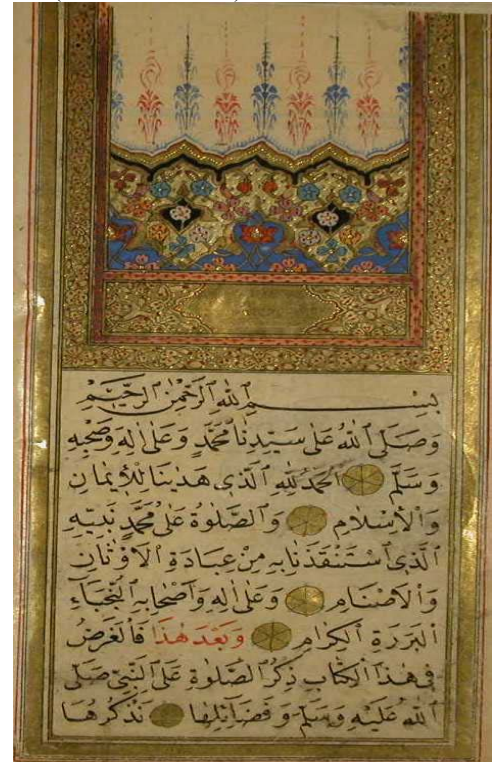 بِسْمِ ٱللّٰهِ ٱلرَّحْمٰنِ ٱلرَّحِيمِ
وَصَلَّى ٱللّٰهُ عَلٰى سَيِّدِنَا مُحَمَّدٍ وَعَلٰى اٰلِهِ وَصَحْبِهِ
وَسَلَّمَ ٱلْحَمْدُ لِلّٰهِ ٱلَّذِى هَدٰينَا لِلْاِيمَانِ
وَٱلْاِسْلَامِ وَٱلصَّلٰوةُ عَلٰى مُحَمَّدٍ نَبِيِّهِ
ٱلَّذِى ٱسْتَنْقَذَنَا بِهِ مِنْ عِبَادَةِ ٱلْاَوْثَانِ
وَٱلْاَصْنَامِ وَعَلٰى اٰلِهِ وَاَصْحَابِهِ ٱلنُّجَبَاءِ
ٱلْبَرَرَةِ ٱلْكِرَامِ وَبَعْدَ هٰذَا فَٱلْغَرَضُ
فِى هٰذَا ٱلْكِتَابِ ذِكْرُ ٱلصَّلٰوةِ عَلَى ٱلنَّبِىِّ صَلَّى
ٱللّٰهُ عَلَيْهِ وَسَلَّمَ وَفَضَآئِلِهَا نَذْكُرُهَا